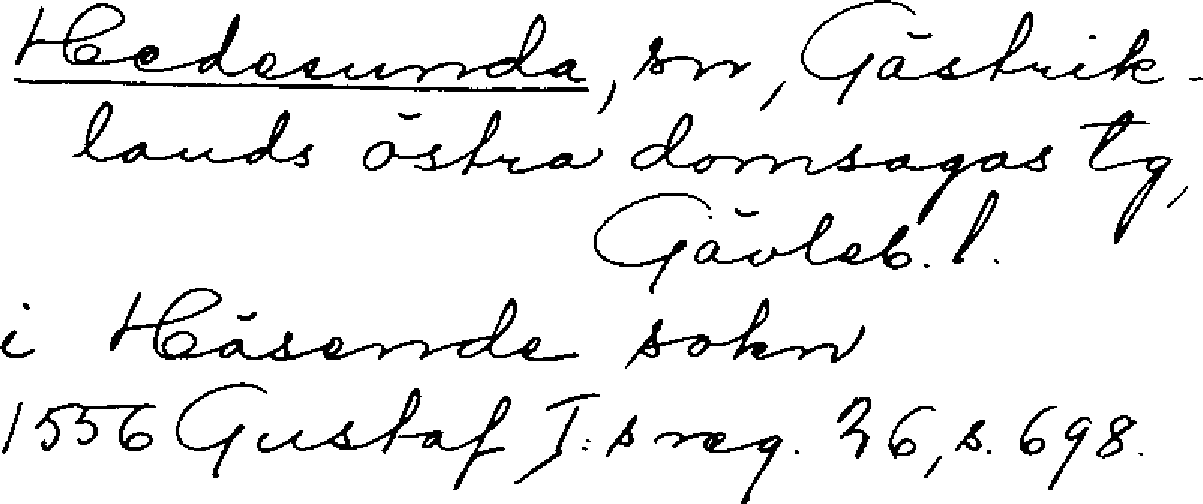 Hedesunda, sn, Gästrik-
lands östra domsagas tg,
Gävleb. l.
i Häsende sokn
1556 Gustaf I:s reg. 26, s. 698.